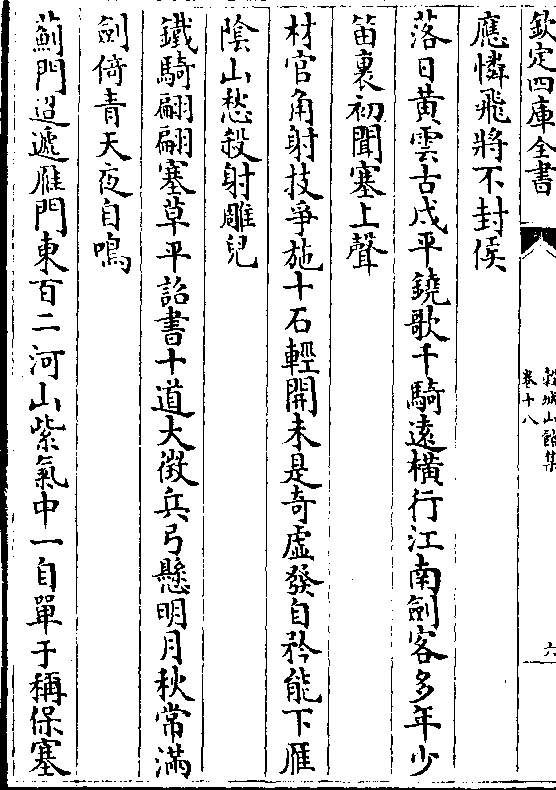 欽定四庫全書
穀城山館集
卷十八
六
應憐飛將不封侯
落日黃雲古戍平鐃歌千騎遠橫行江南劍客多年少
笛裏初聞塞上聲
材官角射技爭施十石輕開未是奇虛發自矜能下雁
陰山愁殺射雕兒
鐵騎翩翩塞草平詔書十道大徵兵弓懸明月秋常滿
劍倚青天夜自鳴
薊門迢遞雁門東百二河山紫氣中一自單于稱保塞